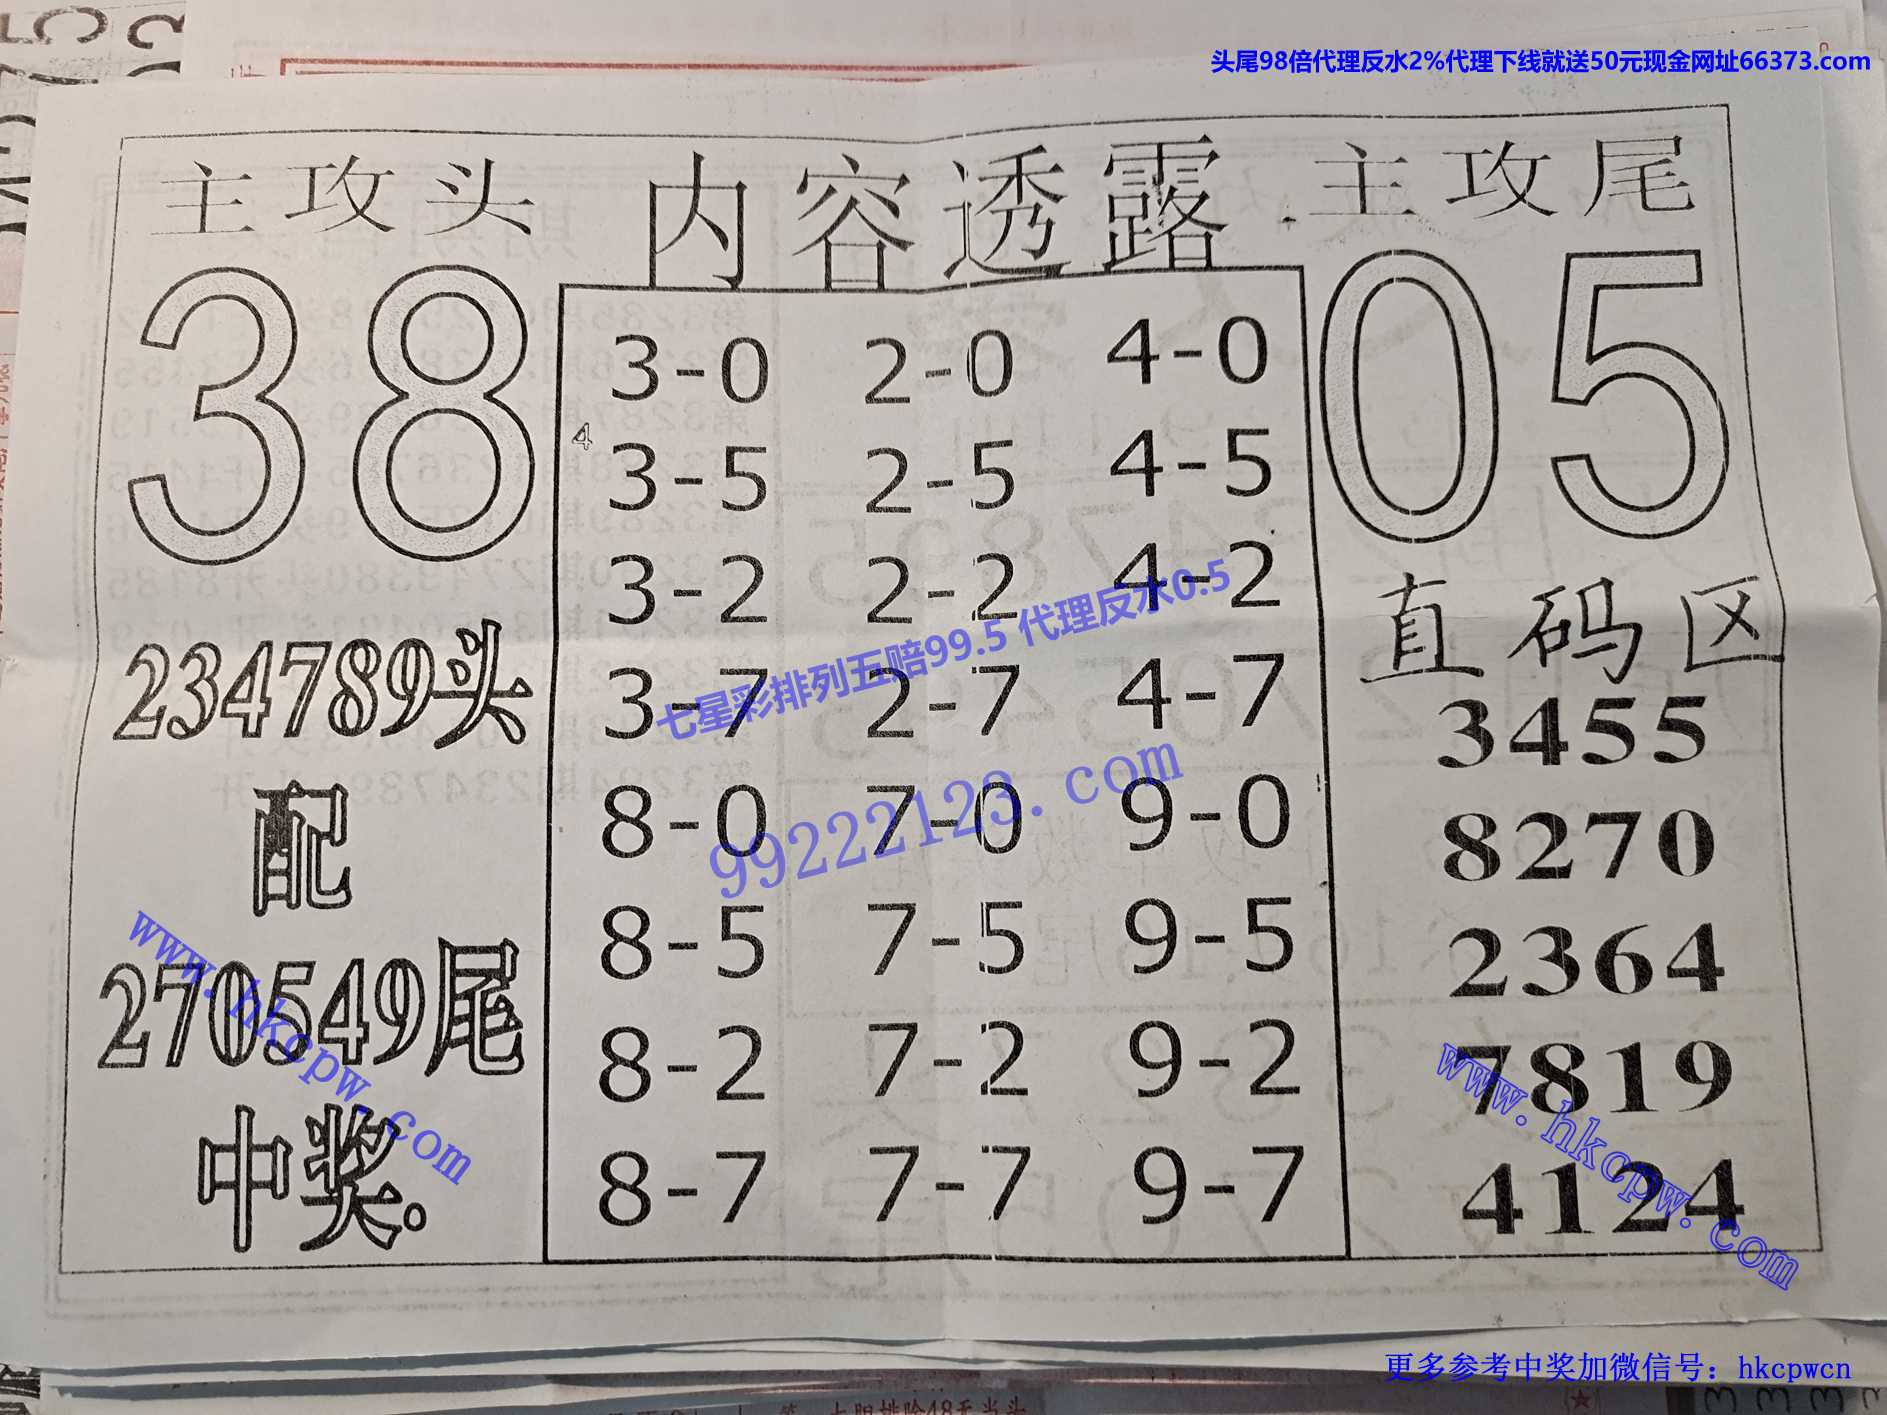 头尾98倍代理反水2%代理下线就送50元现金网址66373.com
主攻头 内容透露 主攻尾
38
05
3-0 2-0 4-0
4
3-5 2-5 4-5
3-2 2-2 4-2
3-7 2-7 4-7
8-0 7-0 9-0
8-5 7-5 9-5
8-2 7-2 9-2
8-7 7-7 9-7
234789头
配
270549尾
中奖。
直码区
3455
8270
2364
7819
4124
七星彩排列五赔99.5 代理反水0.5
99222123.com
www.hkcpw.com
www.hkcpw.com
更多参考中奖加微信号：hkcpwcn